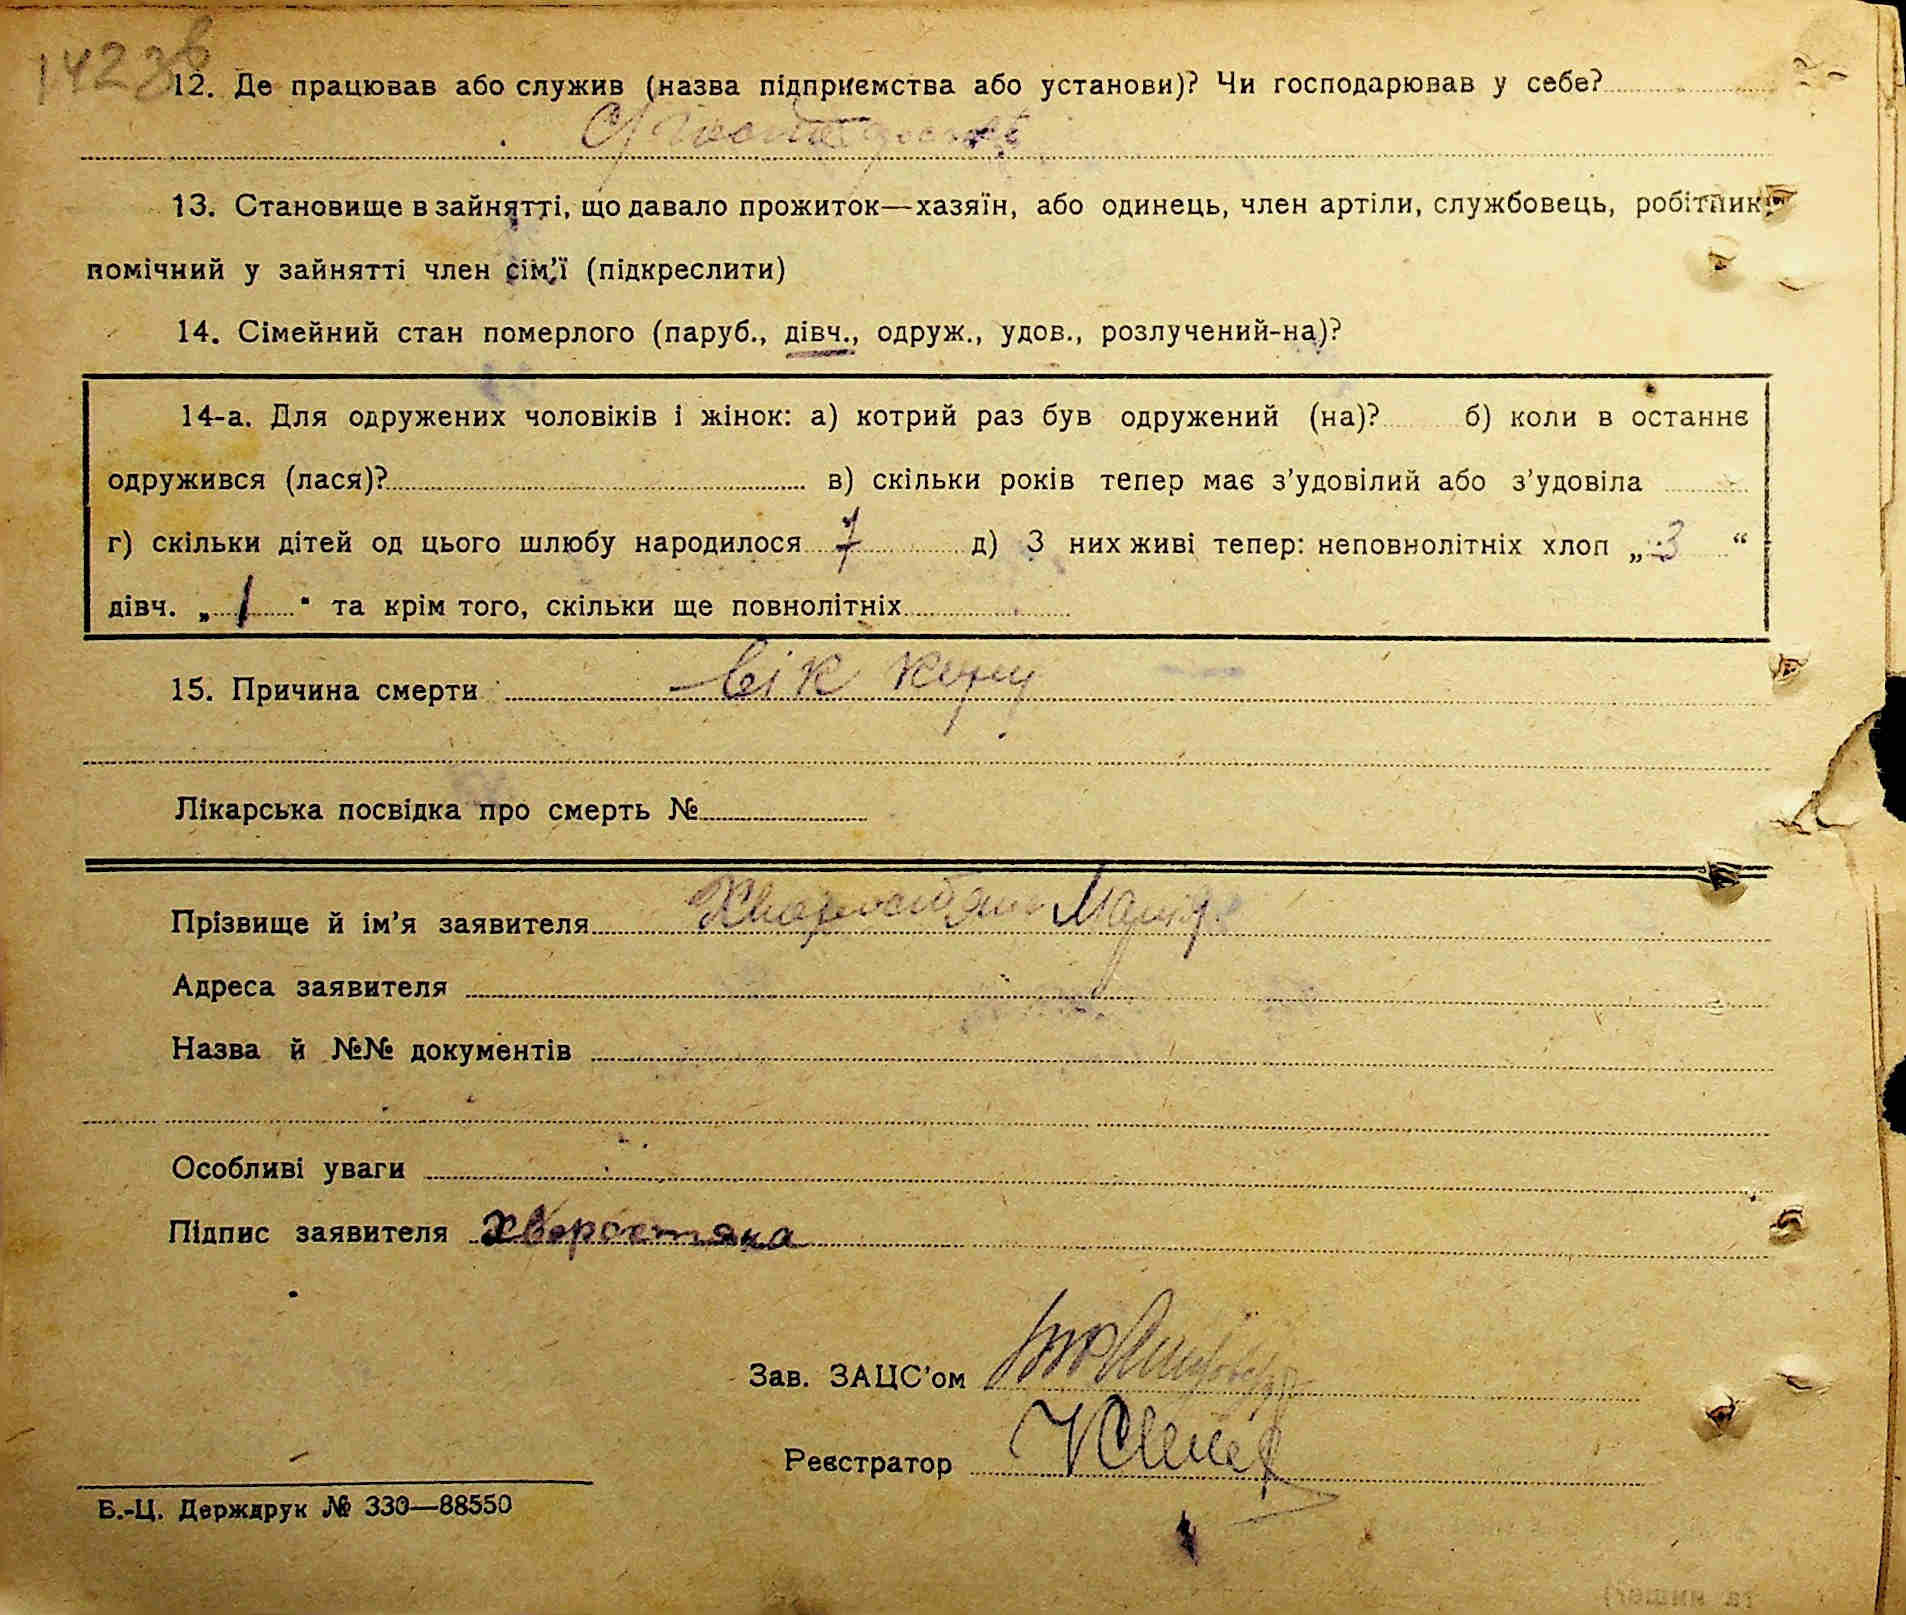 1423в
12. Де працював або служив (назва підприємства або установи)? Чи господарював у себе?
С/
13. Становище в зайнятті, що давало прожиток—хазяїн, або одинець, член артіли, службовець, робітник,
помічний у зайнятті член сім’ї (підкреслити)
14. Сімейний стан померлого (паруб., дівч., одруж., удов., розлучений-на)?
14-а. Для одружених чоловіків і жінок: а) котрий раз був одружений (на)? б) коли в останнє
одружився (лася)? в) скільки років тепер має з’удовілий або з’удовіла
г) скільки дітей од цього шлюбу народилося 7 д) З них живі тепер: неповнолітніх хлоп „ 3 “
дівч. „ 1 “ та крім того, скільки ще повнолітніх
15. Причина смерти вік
Лікарська посвідка про смерть №
Прізвище й ім’я заявителя Хворостяна Мария
Адреса заявителя
Назва й №№ документів
Особливі уваги
Підпис заявителя Хворостяна
Зав. ЗАЦС’ом
Реєстратор
Б.-Ц. Держдрук № 330—88550